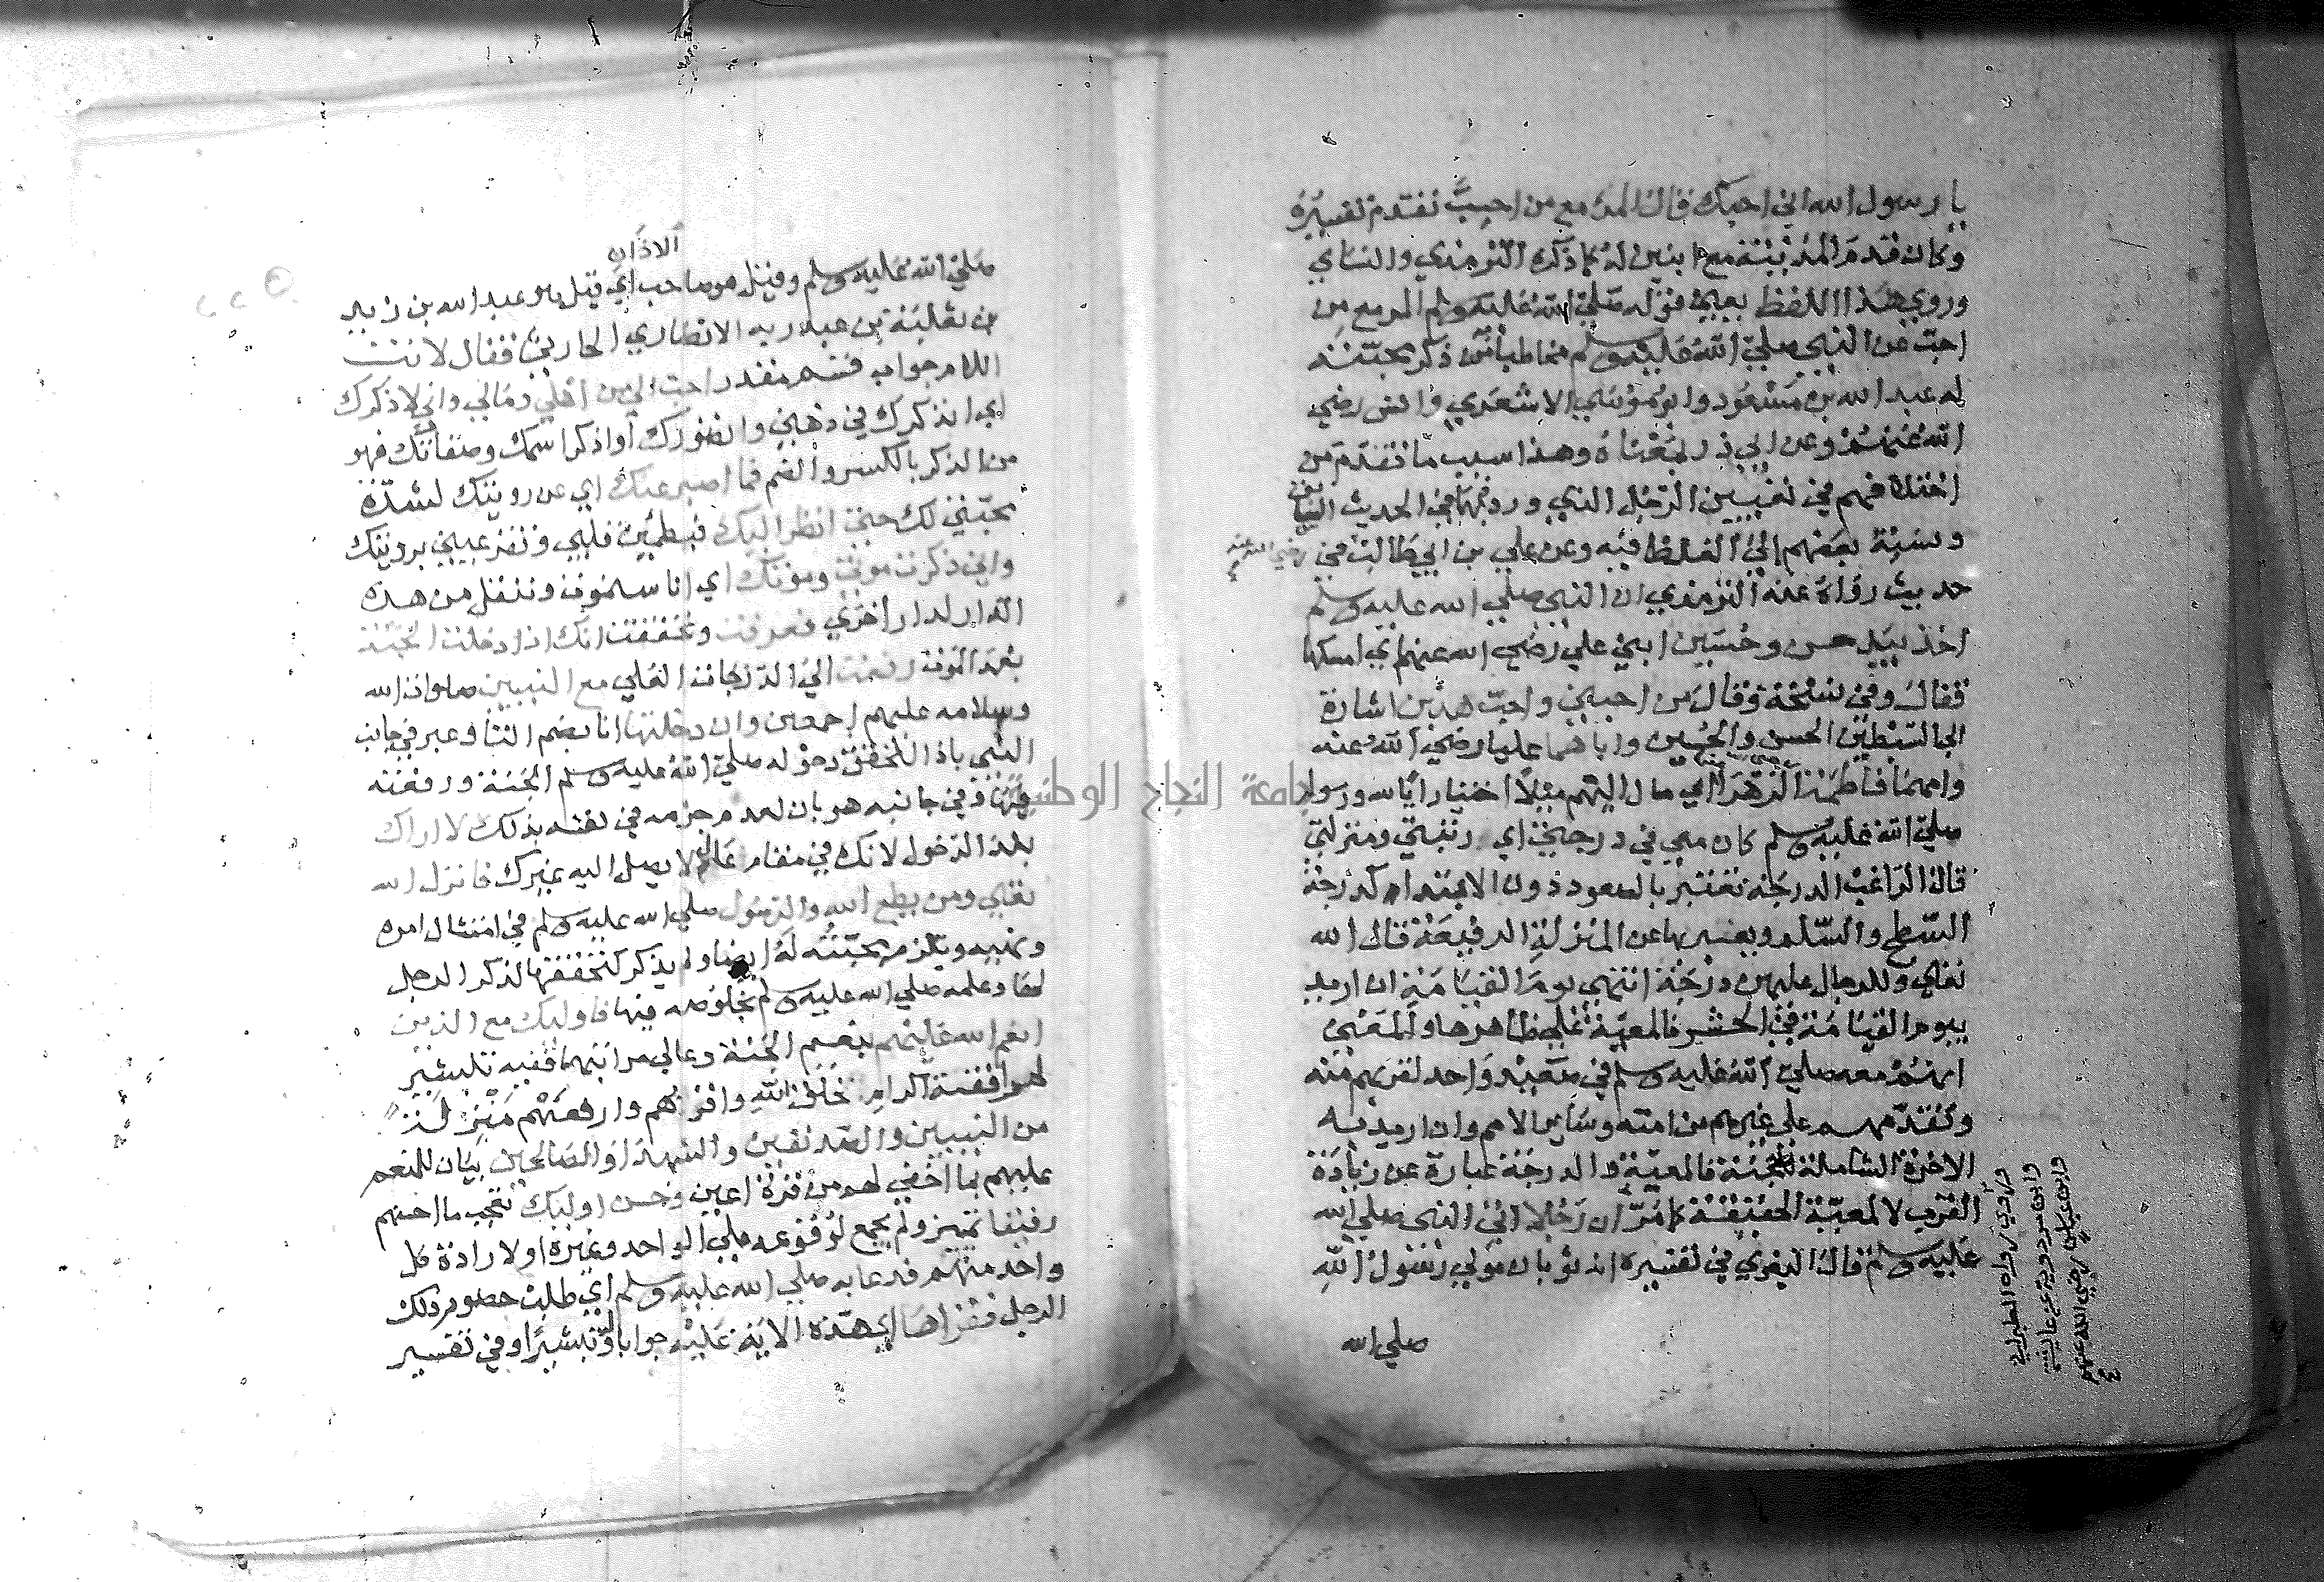 يا رسول الله اني احبك فقال المرء مع من احبّ تقدم تفسيره
وكان قدم المدينة مع ابنين له كما ذكره الترمذي والنساي
وروي هذا اللفظ يعني قوله صلي الله عليه وسلم المرء مع من
احبّ عن النبي صلي الله عليه وسلم مخاطبا من ذكر محبّته
له عبد الله بن مسعود وابو موسي الاشعري وانس رضي
الله عنهم وعن ابي ذر بمعناه وهذا سبب ما تقدم من
اختلافهم في تعيين الرجل الذي ورد مبهما في الحديث السابق
ونسبة بعضهم الي الغلط فيه وعن علي بن ابي طالب رضي الله عنه في
حديث رواه عنه الترمذي ان النبي صلي الله عليه وسلم
اخذ بيد حسن وحسين ابني علي رضي الله عنهم اي امسكها
فقال وفي نسخة وقال من احبني واحبّ هذين اشارة
الي السبطين الحسن والحسين واباهما عليا رضي الله عنه
وامهما فاطمة الزهرا اي مال اليهم ميلا اختياريا لله ورسوله
صلي الله عليه وسلم كان معي في درجتي اي رتبتي ومنزلتي
قال الراغب الدرجة تعتبر بالصعود دون الامتداد كدرجة
السّطح والسّلم ويعبر بها عن المنزلة الرفيعة قال الله
تعالي وللرجال عليهن درجة انتهي يوم القيامة ان اريد
بيوم القيامة في الحشر فالمعية علي ظاهرها والمعني
انهم معه صلي الله عليه وسلم في صعيد واحد لقربهم منه
وتقدمهم علي غيرهم من امته وساير الامم وان اريد به
الاخرة الشاملة للجنة فالمعية والدرجة عبارة عن زيادة
القرب لا لمعية الحقيقية كما مرّ ان رجلا اتي النبي صلي الله
عليه وسلم قال البغوي في تفسيره انه ثوبان مولي رسول الله
صلي الله
وروي رواه الطبراني
وابن مردويه عن عايشة
وابن عباس رضي الله عنهم
صلي الله عليه وسلم وقيل هو صاحب الاذان اي قيل هو عبد الله بن زيد
بن ثعلبة بن عبد ربه الانصاري الحارثي فقال لانت
اللام جواب قسم مقدر احب الي من اهلي ومالي واني لاذكرك
اي اتذكرك في ذهني واتصورك او اذكر اسمك وصفاتك فهو
من الذكر بالكسر والضم فما اصبر عنك اي عن رويتك لشدة
محبّتي لك حتي انظر اليك فيطمئن قلبي وتقر عيني برويتك
واني ذكرت موتي وموتك اي انا سنموت وننتقل من هذه
الدار لدار اخري فعرفت وتحققت انك اذا دخلت الجنة
بعد الموت رفعت الي الدرجات العلي مع النبيين صلوات الله
وسلامه عليهم اجمعين وان دخلتها انا بضم التا وعبر في جانب
النبي باذا لتحقق دخوله صلي الله عليه وسلم الجنة ورفعته
فيها وفي جانبه هو بان لعدم جزمه في نفسه بذلك لا اراك
بعد الدخول لانك في مقام عال لا يصل اليه غيرك فانزل الله
تعالي ومن يطع الله والرسول صلي الله عليه وسلم في امتثال امره
ونهيه ويلزم محبّته له ايضا ولم يذكر لتحققها لذكر الرجل
لها وعلمه صلي الله عليه وسلم بخلوصه فيها فاوليك مع الذين
انعم الله عليهم بنعيم الجنة وعالي مراتبها ففيه تبشير
لهم بمرافقة اكرام خلق الله واقربهم وارفعهم منزلة
من النبيين والصديقين والشهدا والصالحين بيان للمنعم
عليهم بما اخفي لهم من قرة اعين وحسن اوليك تعجب ما احسنهم
رفيقا تمييز ولم يجمع لوقوعه علي الواحد وغيره او لارادة كل
واحد منهم فدعا به صلي الله عليه وسلم اي طلب حضور ذلك
الرجل فقراها اي هذه الاية عليه جوابا له وتبشيرا وفي تفسير
جامعة النجاح الوطنية